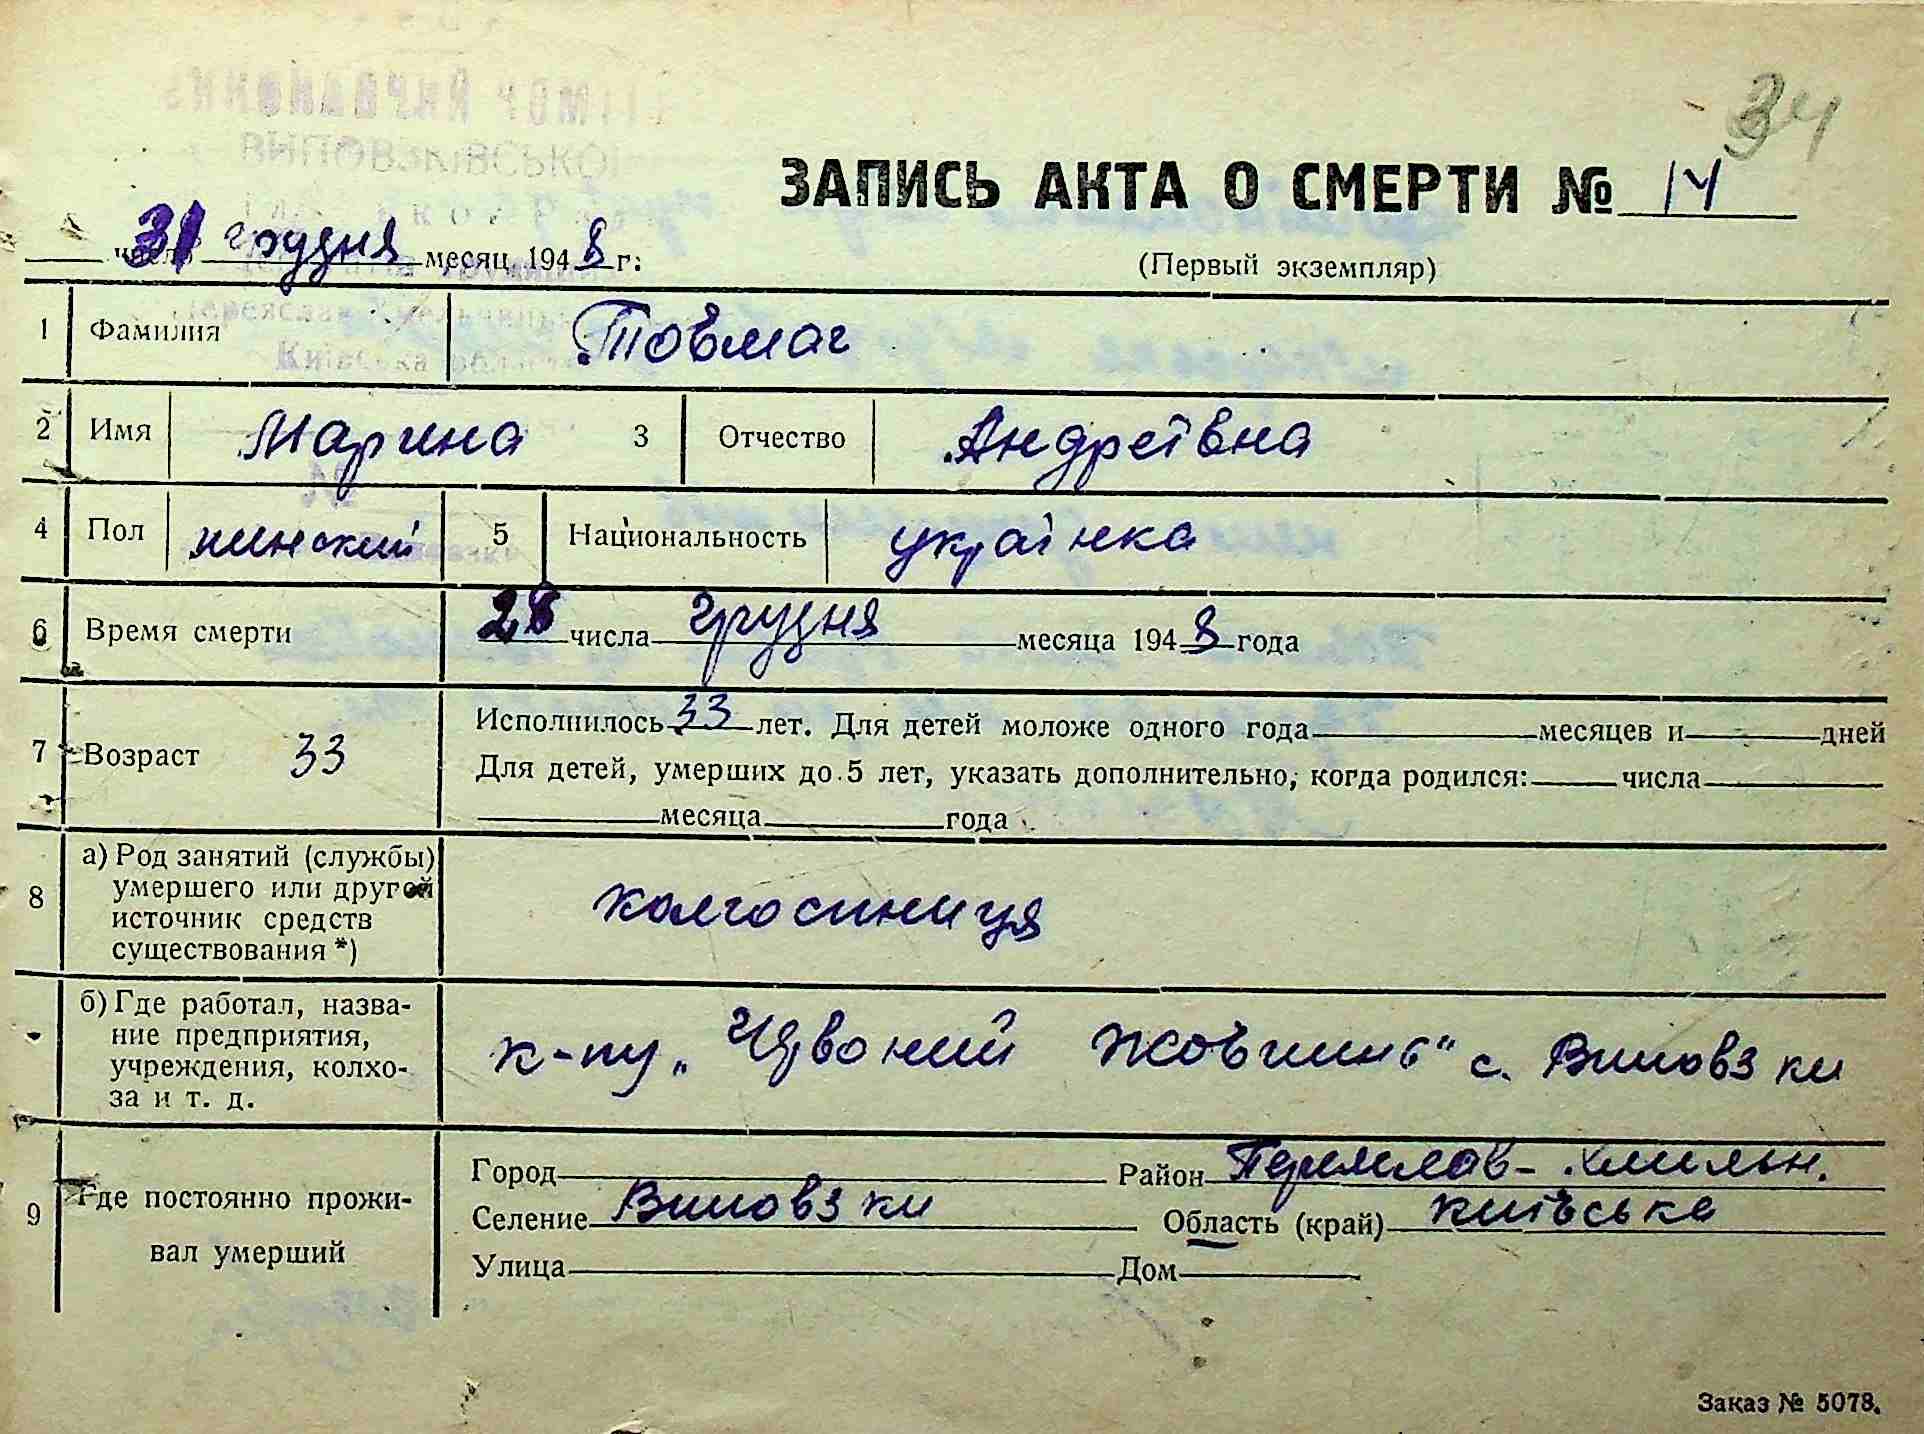 34
ЗАПИСЬ АКТА О СМЕРТИ № 14
31 число грудня месяц 1948 г.
(Первый экземпляр)
1 Фамилия Товмач
2 Имя Марина 3 Отчество Андреївна
4 Пол жинский 5 Национальность українка
6 Время смерти 28 числа грудня месяца 1948 года
7 Возраст 33 Исполнилось 33 лет. Для детей моложе одного года месяцев и дней
Для детей, умерших до 5 лет, указать дополнительно, когда родился: числа
месяца года
8 а) Род занятий (службы)
умершего или другой
источник средств
существования *)
колгоспниця
б) Где работал, назва-
ние предприятия,
учреждения, колхо-
за и т. д.
к-пу „Чрвоний Жовтинь" с. Виповзки
9 Где постоянно прожи-
вал умерший
Город Район Переяслав-Хмильн.
Селение Виповзки Область (край) Київська
Улица Дом
Заказ № 5078.